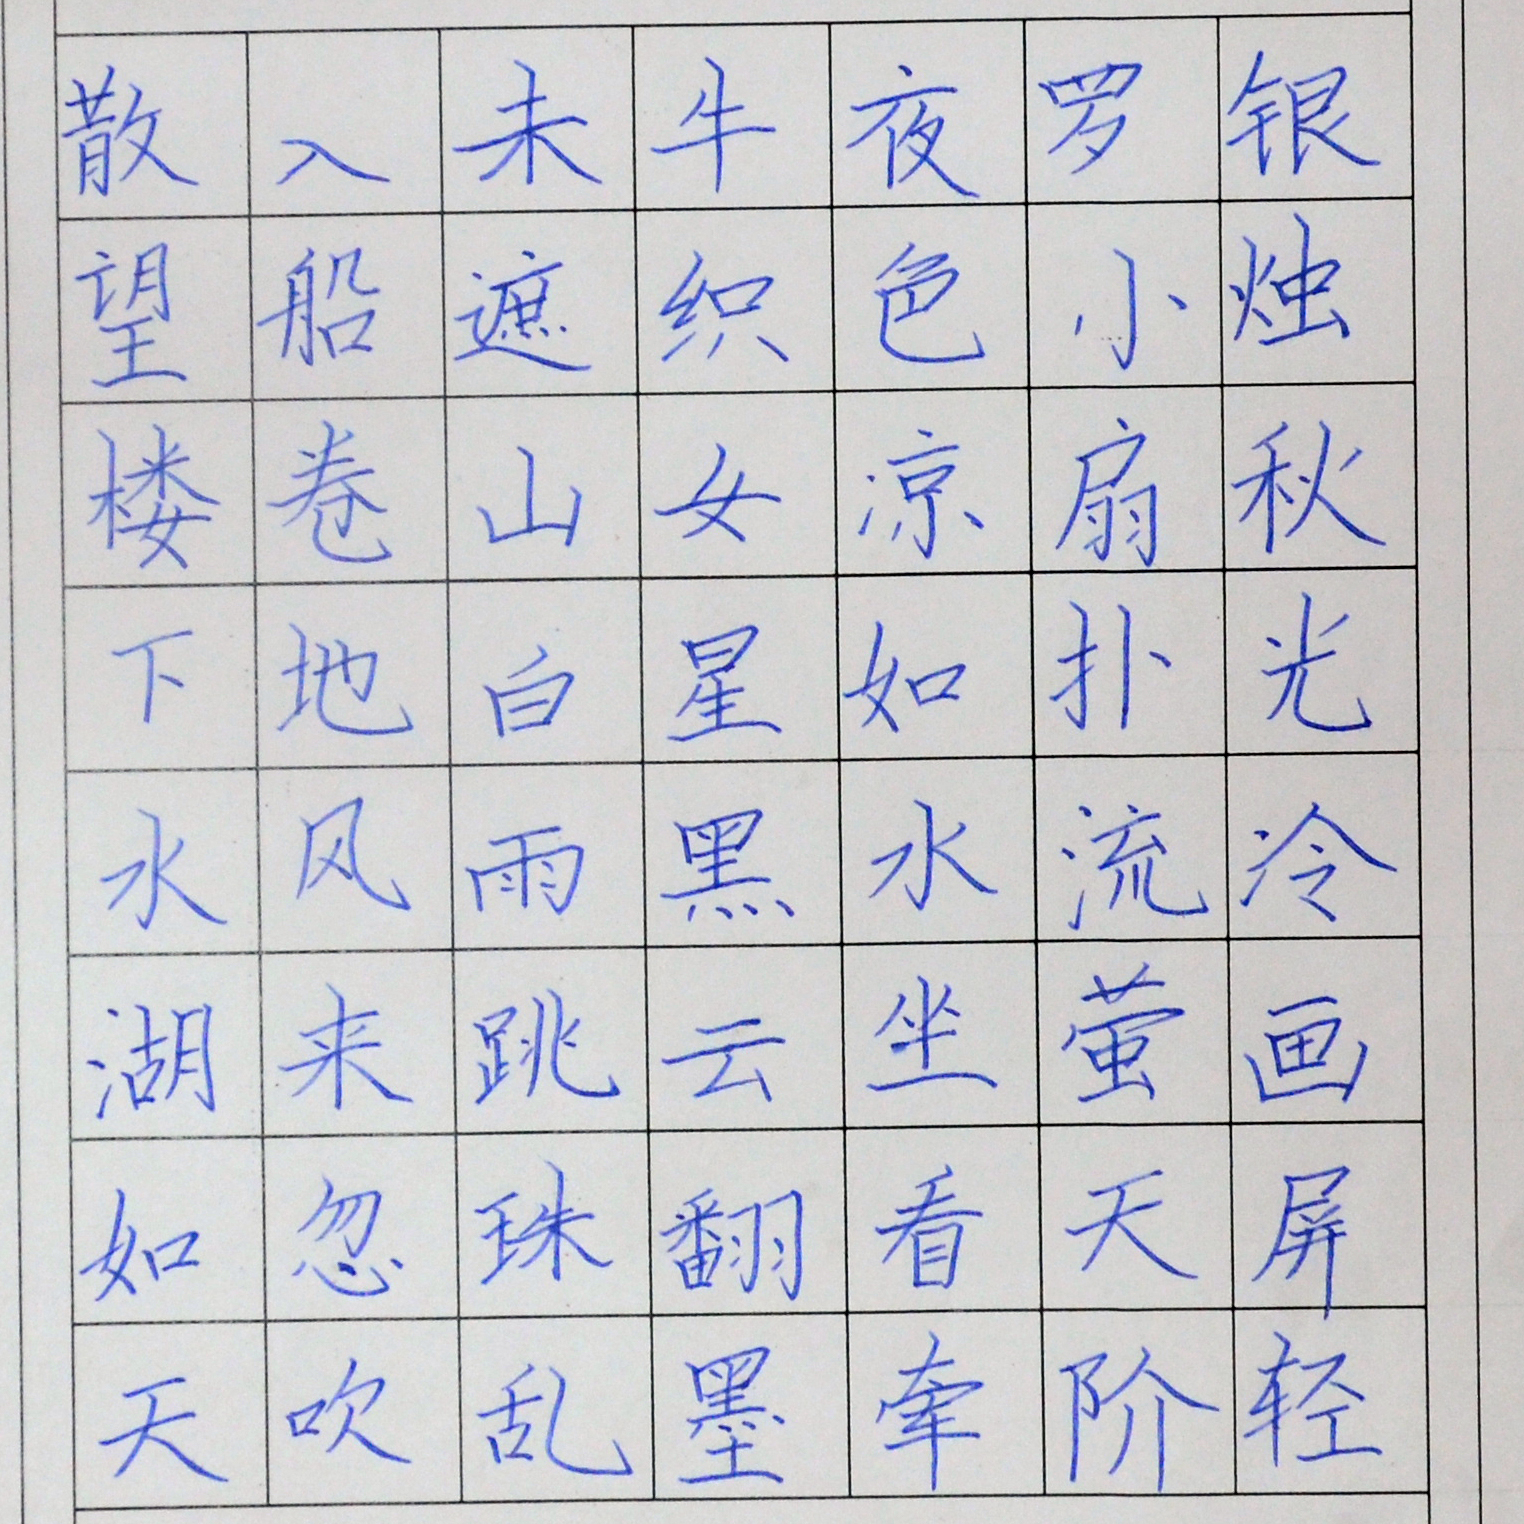 银烛秋光冷画屏轻
罗小扇扑流萤天阶
夜色凉如水坐看牵
牛织女星黑云翻墨
未遮山白雨跳珠乱
入船卷地风来忽吹
散望楼下水湖如天